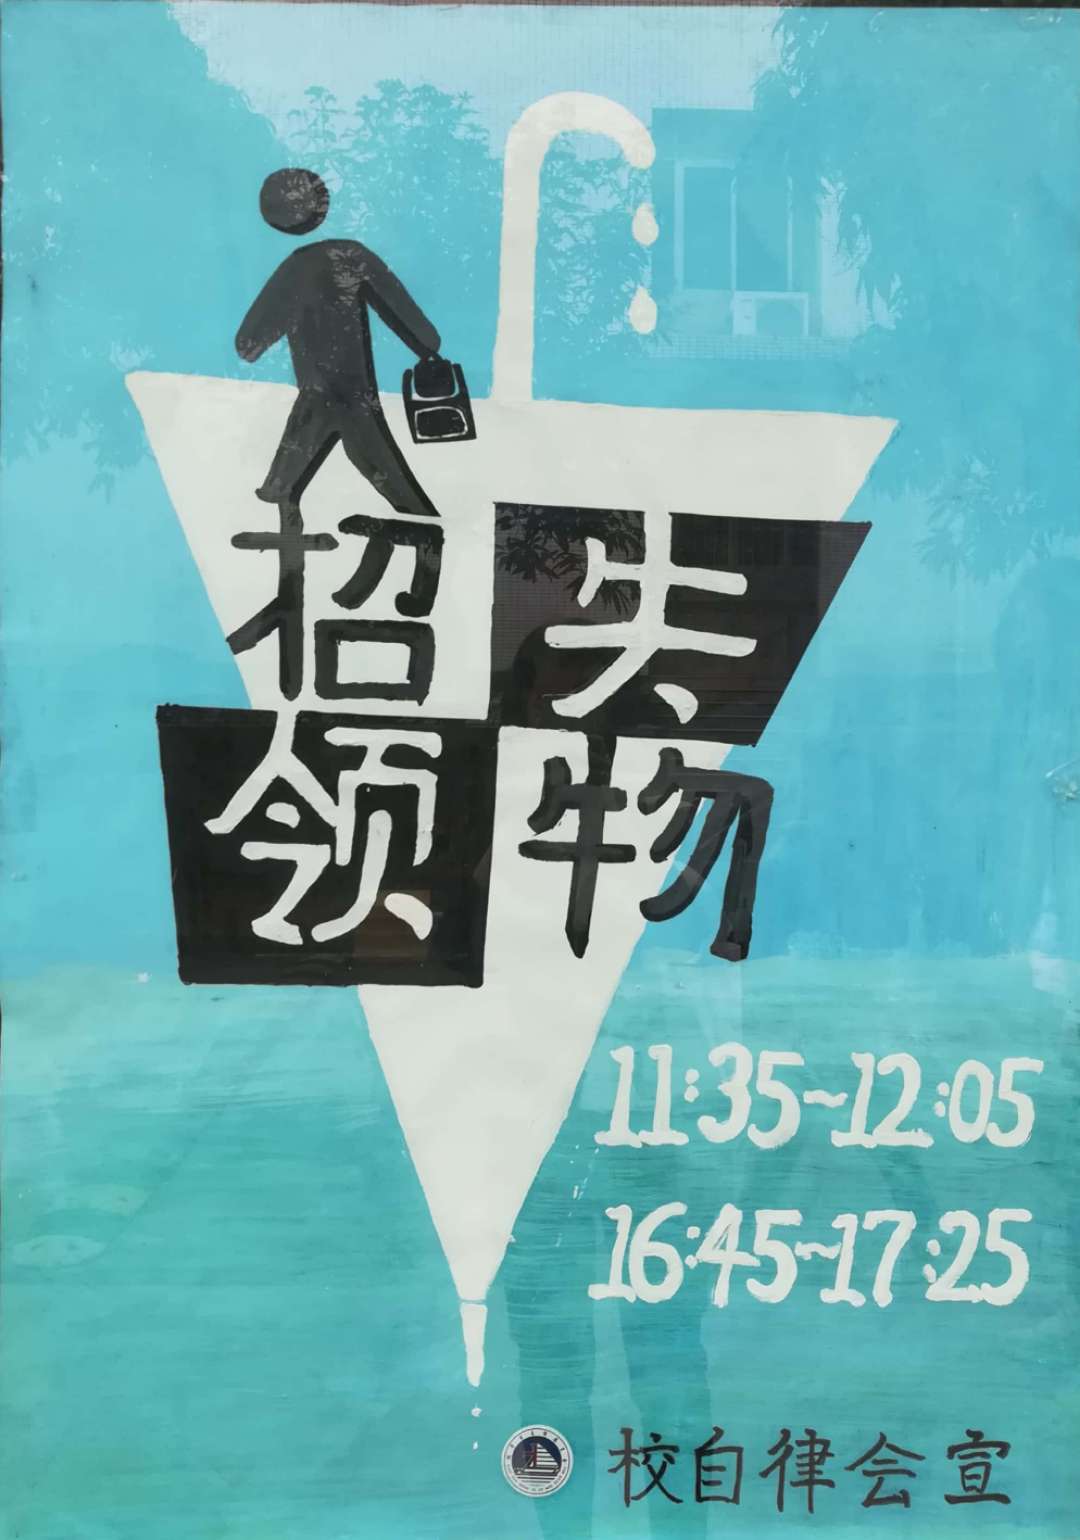 失物
招领
11:35~12:05
16:45~17:25
校自律会宣